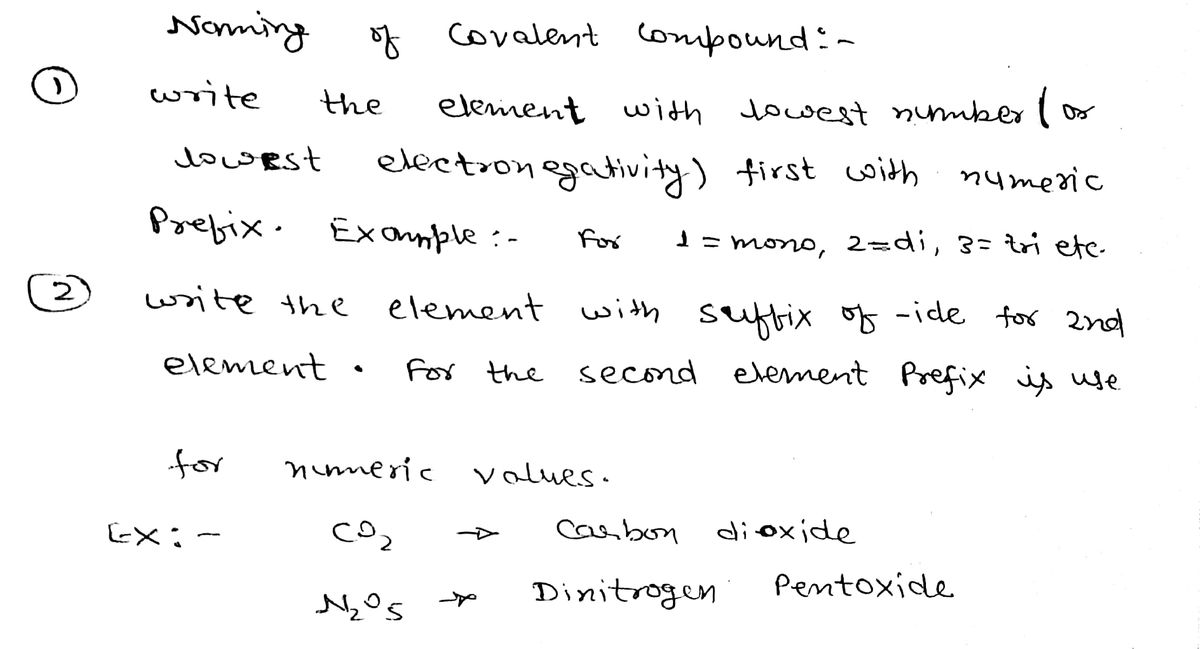 Naming of Covalent Compound:-
① write the element with lowest number (or
lowest electronegativity) first with numeric
Prefix. Example :- For 1 = mono, 2=di, 3= tri etc.
② write the element with suffix of -ide for 2nd
element. For the second element Prefix is use
for numeric values.
Ex:- CO₂ → Carbon dioxide
N₂O₅ → Dinitrogen Pentoxide